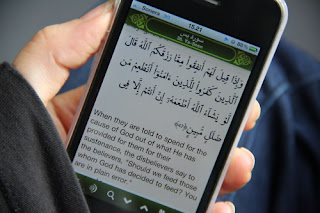 Sonera 15.21
سورة يس
وَإِذَا قِيلَ لَهُمْ أَنفِقُوا۟ مِمَّا رَزَقَكُمُ ٱللَّهُ قَالَ
ٱلَّذِينَ كَفَرُوا۟ لِلَّذِينَ ءَامَنُوٓا۟ أَنُطْعِمُ مَن
لَّوْ يَشَآءُ ٱللَّهُ أَطْعَمَهُۥٓ إِنْ أَنتُمْ إِلَّا فِى
ضَلَٰلٍ مُّبِينٍ ﴿٤٧﴾
When they are told to spend for the
cause of God out of what He has
provided for them for their
sustenance, the disbelievers say to
the believers, "Should we feed those
whom God has decided to feed? You
are in plain error."